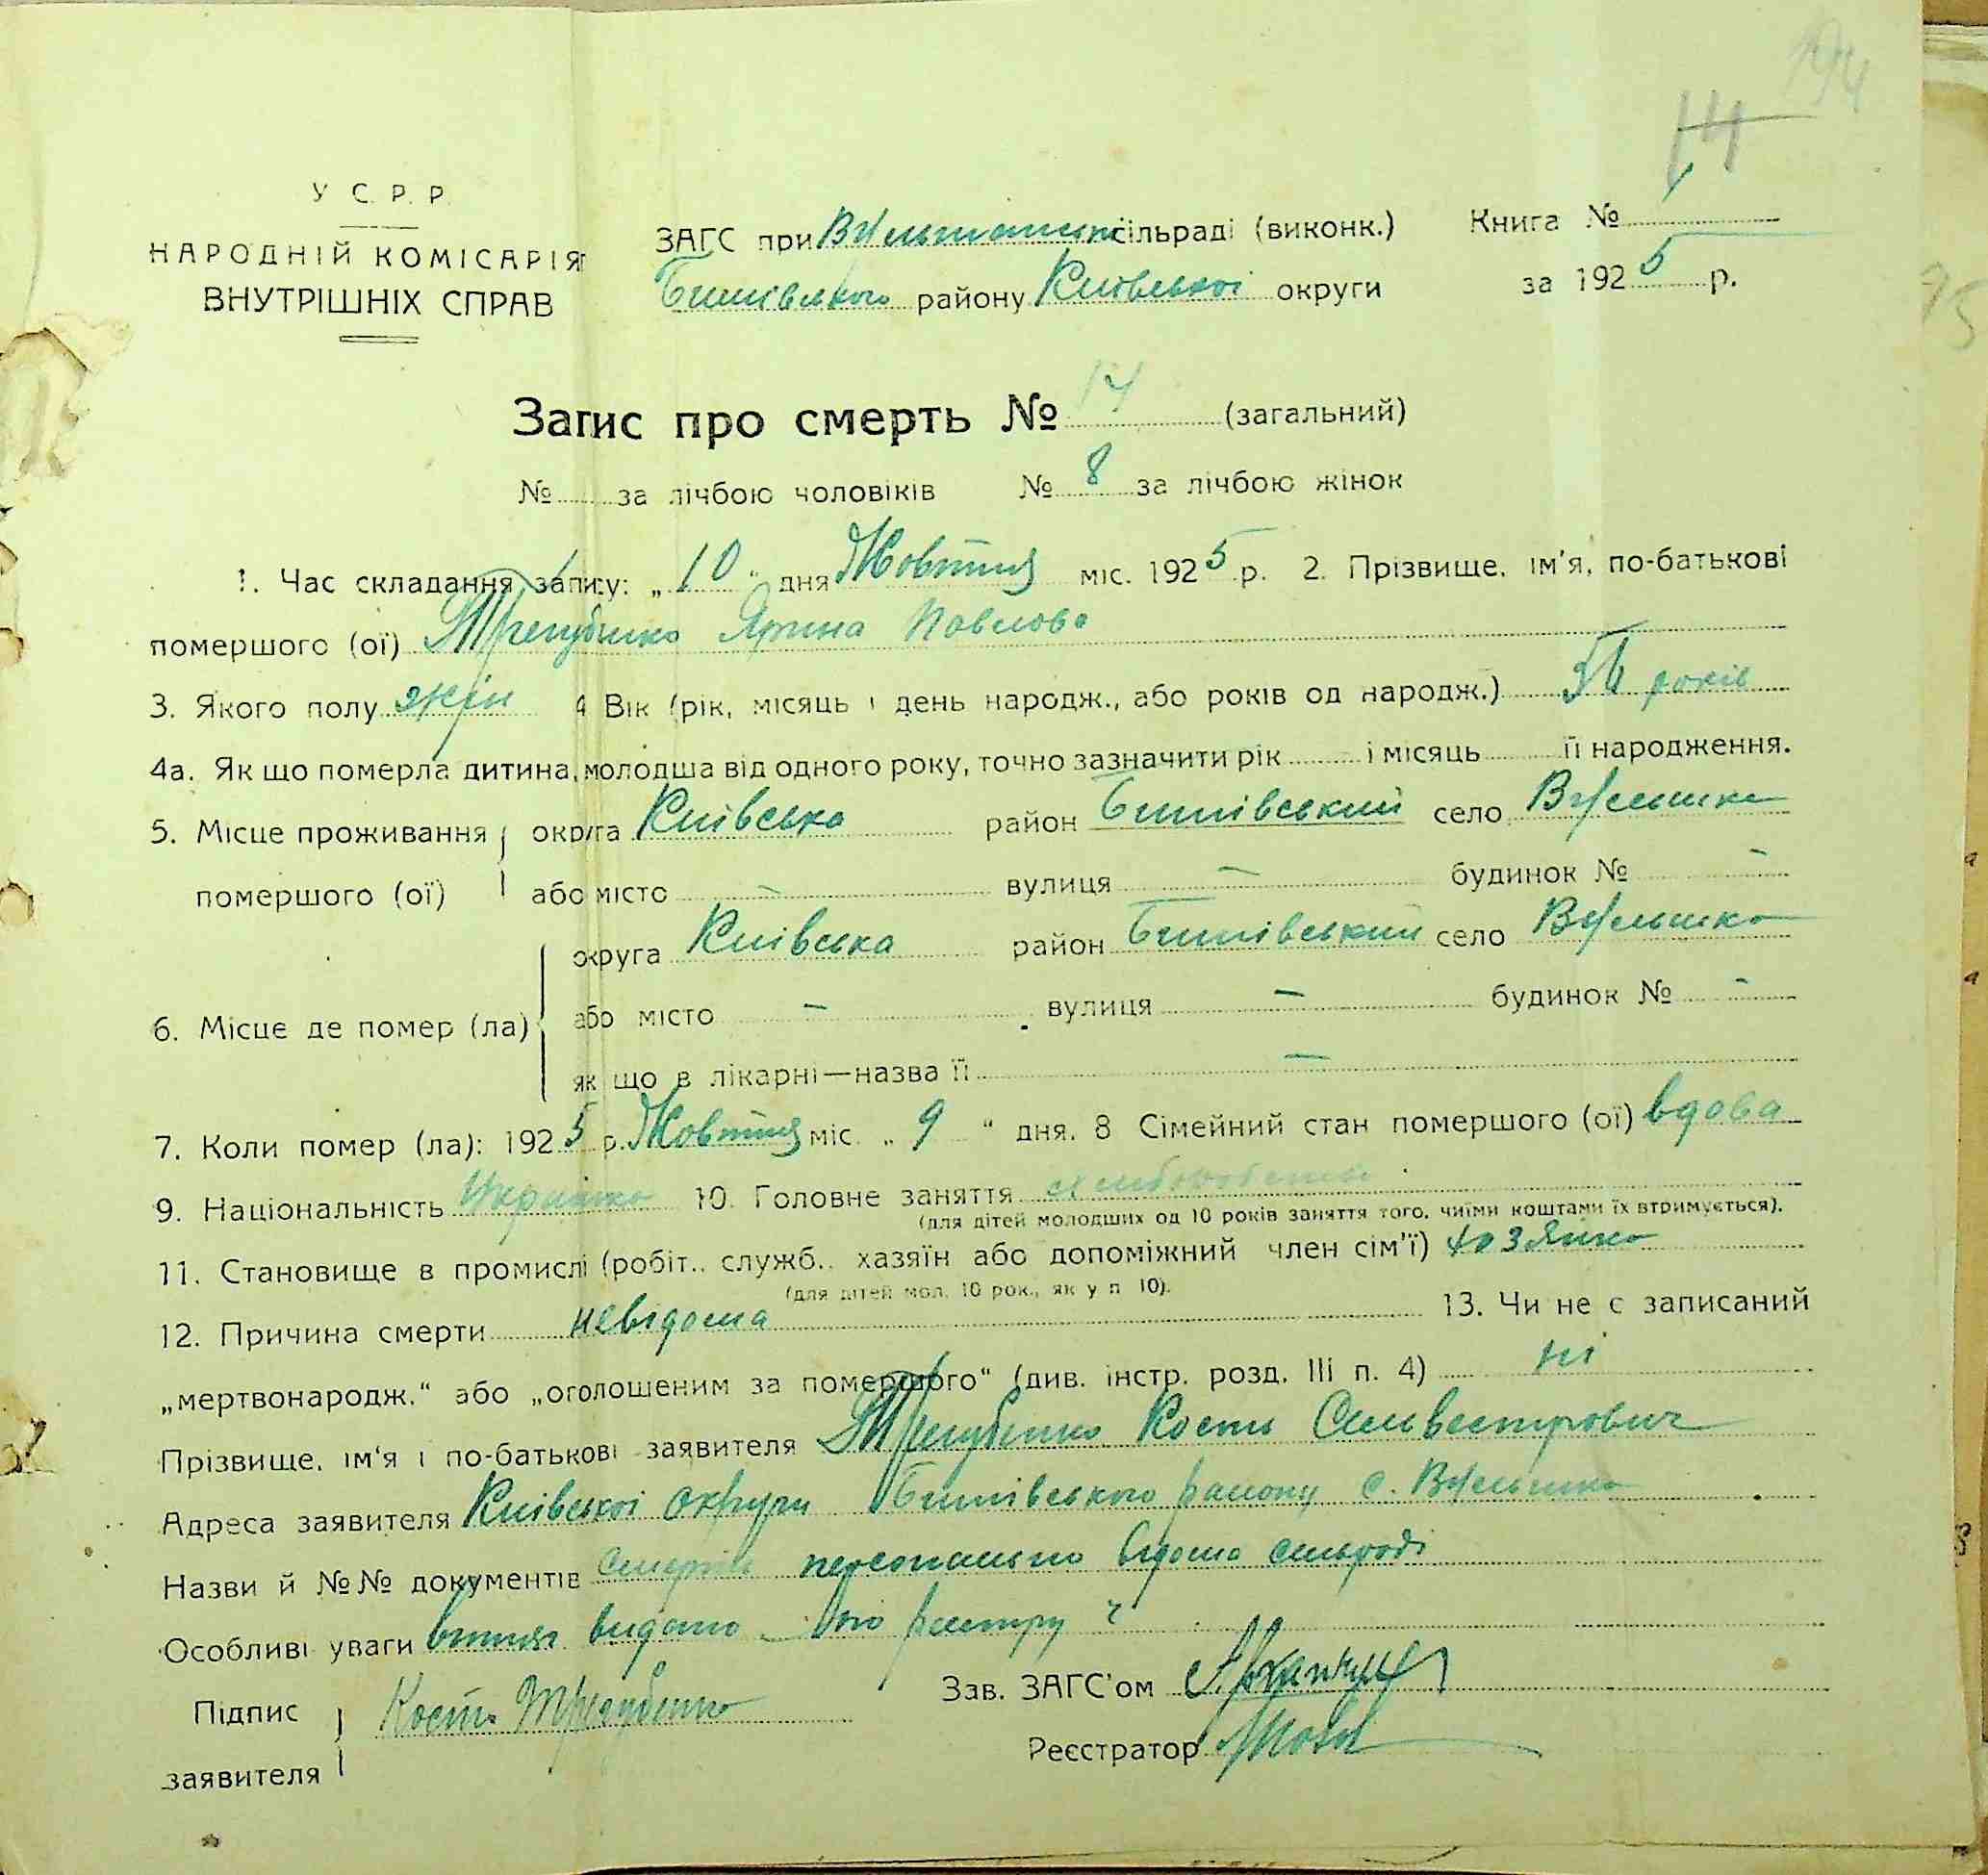 194
14
У С. Р. Р.
НАРОДНІЙ КОМІСАРІЯТ
ВНУТРІШНІХ СПРАВ
ЗАГС при сільраді (виконк.)
району Київської округи
Книга № 1
за 1925 р.
75
Запис про смерть № 14 (загальний)
№ за лічбою чоловіків № 8 за лічбою жінок
1. Час складання запису: „10" дня Жовтня міс. 1925 р. 2. Прізвище, ім'я, по-батькові
помершого (ої) Трегубенко Ярина Павлова
3. Якого полу жін 4 Вік (рік, місяць і день народж., або років од народж.) років
4а. Як що померла дитина, молодша від одного року, точно зазначити рік і місяць її народження.
5. Місце проживання округа Київська район село
помершого (ої) або місто — вулиця — будинок № —
округа Київська район село
6. Місце де помер (ла) або місто — вулиця — будинок № —
як що в лікарні—назва її —
7. Коли помер (ла): 1925 р. Жовтня міс. „9" дня. 8 Сімейний стан помершого (ої) вдова
9. Національність Українка 10. Головне заняття
(для дітей молодших од 10 років заняття того, чиїми коштами їх втримується).
11. Становище в промислі (робіт., служб., хазяїн або допоміжний член сім'ї) хозяйка
(для дітей мол. 10 рок., як у п 10).
12. Причина смерти невідома 13. Чи не є записаний
„мертвонародж." або „оголошеним за помершого" (див. інстр. розд. III п. 4) ні
Прізвище, ім'я і по-батькові заявителя Трегубенко Кость Сильвестрович
Адреса заявителя Київської округи району с.
Назви й №№ документів персонально відома сільраді
Особливі уваги витяг видано по реєстру
Підпис заявителя Кость Трегубенко
Зав. ЗАГС'ом
Реєстратор